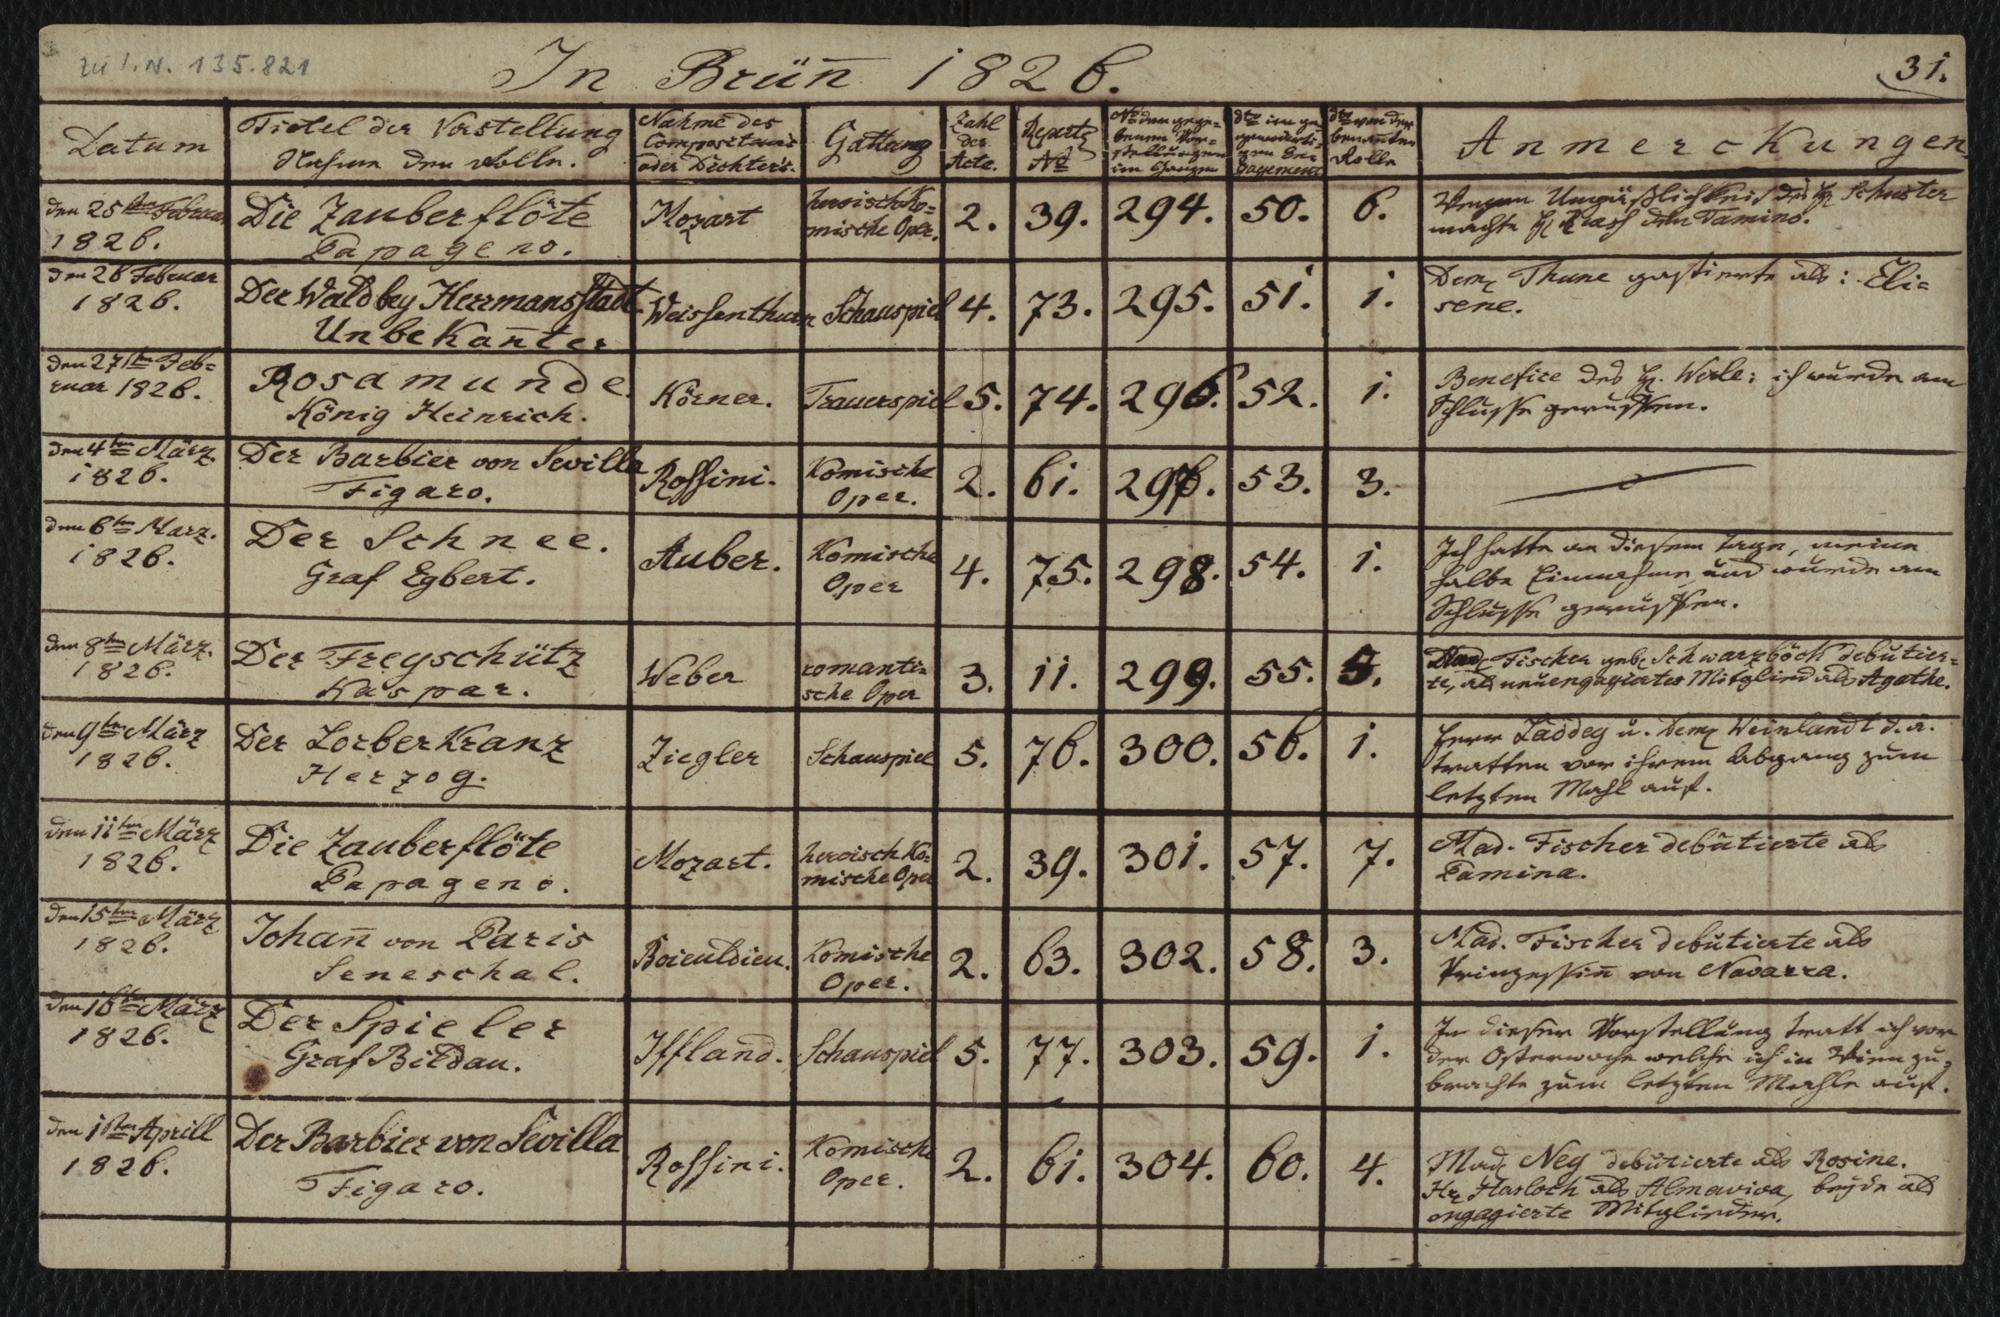 zu I.N. 135.821
In Brün̄ 1826.
31.
Datum
Tietel der Vorstellung
Nahme der Rolle.
Nahme des
Compositeurs
oder Dichters.
Gattung
Zahl
der
Acte.
Repert
No
No der gege-
benen Vor-
stellungen
im Ganzen
dto im ge-
genwärti-
gen En-
gagement
dto von der
benan̄ten
Rolle
Anmerckungen
den 25ten Februar
1826.
Die Zauberflöte
Papageno.
Mozart
heroisch Ko-
mische Oper.
2.
39.
294.
50.
6.
Wegen Unpäßlichkeit des H. Schuster
machte H. den Tamino.
den 26 Februar
1826.
Der Wald bey Herrmansstadt
Unbekan̄ter
Weissenthurn
Schauspiel
4.
73.
295.
51.
1.
Dem. Thune gastierte als: Eli-
sene.
den 27ten Feb-
ruar 1826.
Rosamunde.
König Heinrich.
Körner.
Trauerspiel
5.
74.
296.
52.
1.
Benefice des H. Werle; ich wurde am
Schlusse geruffen.
den 4ten März
1826.
Der Barbier von Sevilla
Figaro.
Rossini.
Komische
Oper.
2.
61.
297.
53.
3.
den 6ten März.
1826.
Der Schnee.
Graf Egbert.
Auber.
Komische
Oper
4.
75.
298.
54.
1.
Ich hatte an diesem Tage, meine
halbe Einnahme und wurde am
Schlusse geruffen.
den 8ten März.
1826.
Der Freyschütz
Kaspar.
Weber
romanti-
sche Oper
3.
11.
299.
55.
5.
Mad. Fischer geb. Schwarzböck debütier-
te, als neuengagiertes Mitglied als Agathe.
den 9ten März
1826.
Der Lorberkranz
Herzog.
Ziegler
Schauspiel
5.
76.
300.
56.
1.
Herr Laddey u. Dem. Weinlandt d. ä.
tratten vor ihrem Abgang zum
letzten Mahl auf.
den 11ten März
1826.
Die Zauberflöte
Papageno.
Mozart.
heroisch Ko-
mische Oper
2.
39.
301.
57.
7.
Mad. Fischer debütierte als
Pamina.
den 15ten März
1826.
Johan̄ von Paris
Seneschal.
Boieuldieu.
Komische
Oper.
2.
63.
302.
58.
3.
Mad. Fischer debütierte als
Prinzessin̄ von Navarra.
den 16ten März
1826.
Der Spieler
Graf Bildau.
Iffland.
Schauspiel
5.
77.
303.
59.
1.
In dieser Vorstellung tratt ich vor
der Osterwoche welche ich in Wien zu-
brachte zum letzten Mahle auf.
den 1ten Aprill
1826.
Der Barbier von Sevilla
Figaro.
Rossini.
Komische
Oper.
2.
61.
304.
60.
4.
Mad. Ney debütierte als Rosine.
Hr. Harloch als Almaviva, beyde als
engagierte Mitglieder.